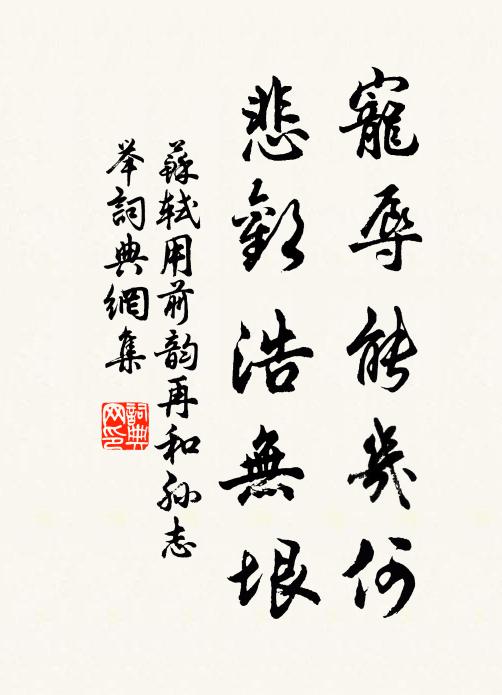 寵辱能幾何
悲歡浩無垠
蘇軾用前韵再和孫志
举詞典網集
詞典网印